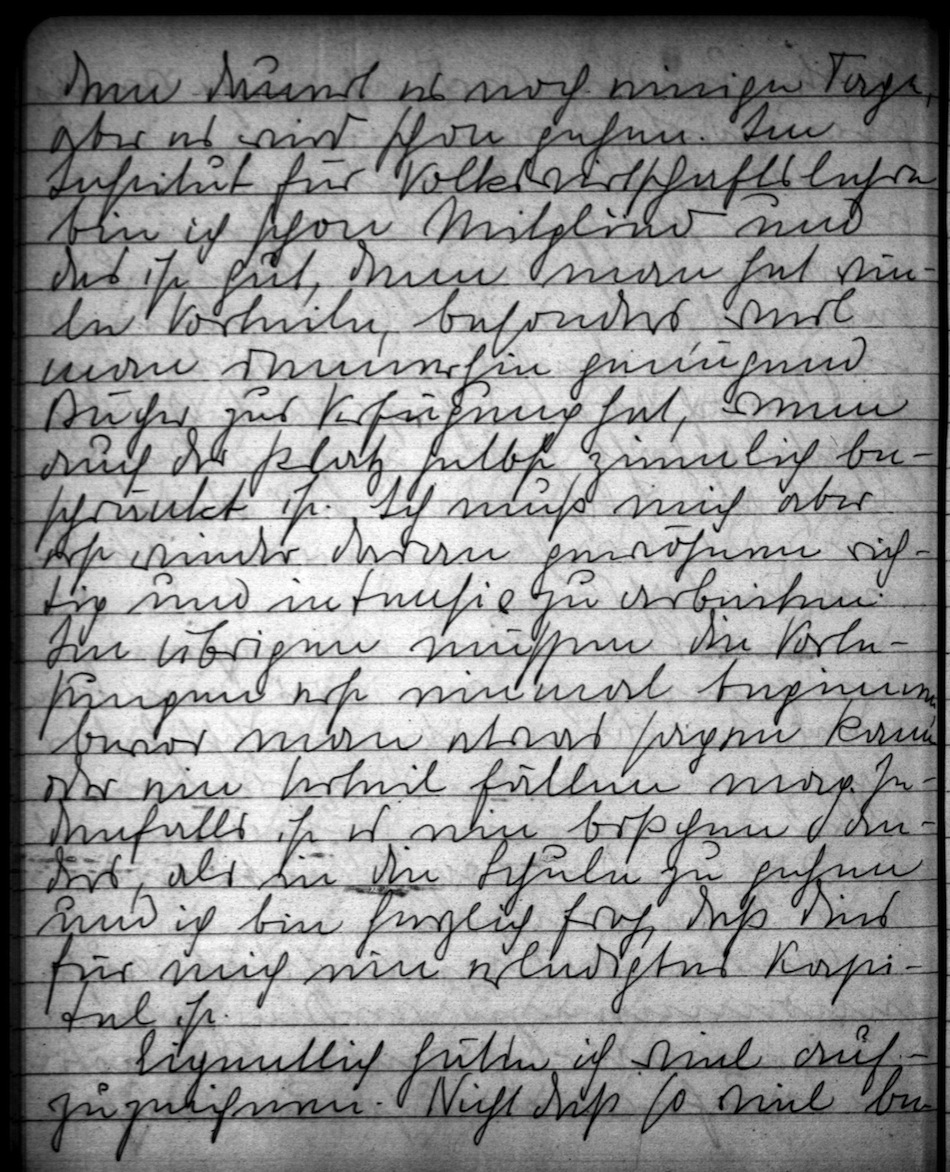 denn dauert es noch einige Tage,
aber es wird schon gehen. Im
Institut für Volkswirtschaftslehre
bin ich schon Mitglied und
das ist gut, denn man hat vie-
le Vorteile, besonders weil
man immerhin genügend
Bücher zur Verfügung hat, wenn
auch der Platz selbst ziemlich be-
schränkt ist. Ich muß mich aber
erst wieder daran gewöhnen rich-
tig und intensiv zu arbeiten.
Im übrigen müssen die Vorle-
sungen erst einmal beginnen
bevor man etwas sagen kann
oder ein Urteil fällen mag. Je-
denfalls ist es ein bißchen an-
ders, als in die Schule zu gehen
und ich bin herzlich froh, daß dies
für mich ein erledigtes Kapi-
tel ist.
Eigentlich hätte ich viel auf-
zuzeichnen. Nicht daß so viel be-